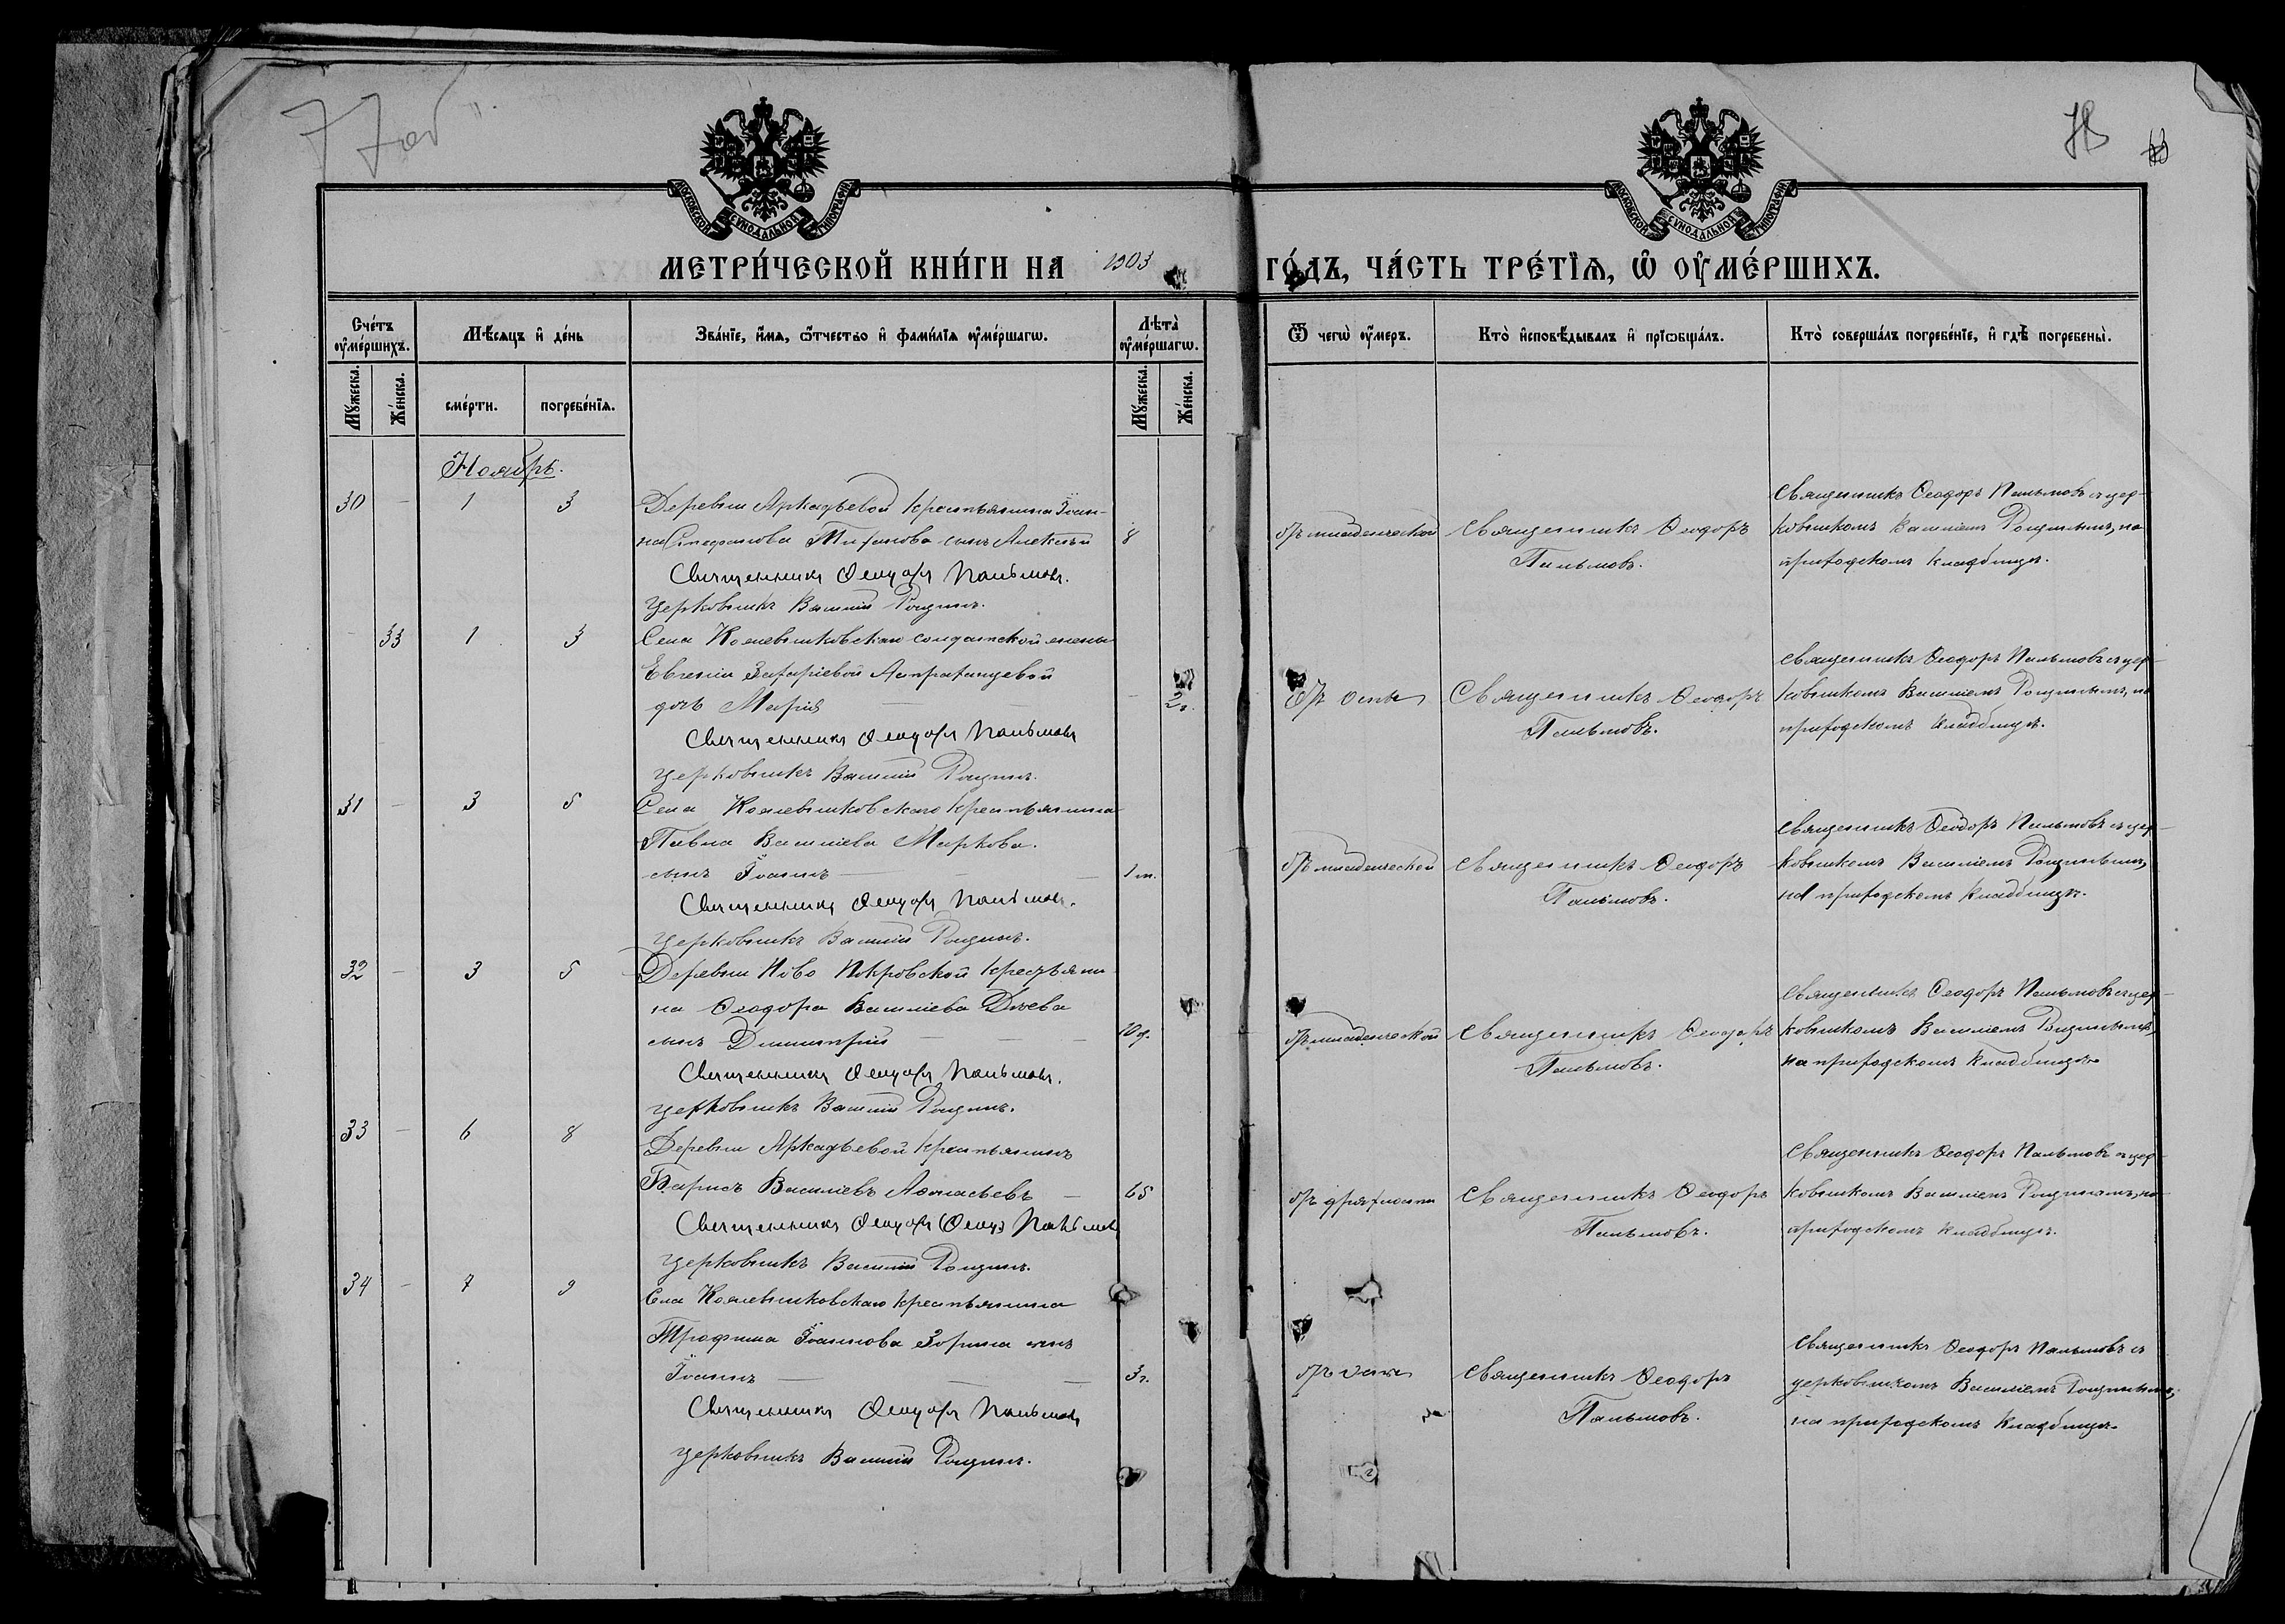 77 об
78
МОСКОВСКОЙ СѴНОДАЛЬНОЙ ТИПОГРАФІИ
МОСКОВСКОЙ СѴНОДАЛЬНОЙ ТИПОГРАФІИ
МЕТРИ́ЧЕСКОЙ КНИ́ГИ НА 1903 ГО́ДЪ, ЧА́СТЬ ТРЕ́ТЇѦ, Ѡ ОУ҆МЕ́РШИХЪ.
Сче́тъ оу҆ме́ршихъ.
Мѣ́сяцъ и҆ де́нь
Зва́нїе, и҆́мѧ, ѻ҆́тчество и҆ фами́лїѧ оу҆ме́ршагѡ.
Лѣта̀ оу҆ме́ршагѡ.
Ѿ чегѡ̀ оу҆́меръ.
Кто̀ и҆сповѣ́дывалъ и҆ прїѡбща́лъ.
Кто̀ соверша́лъ погребе́нїе, и҆ гдѣ̀ погребены̀.
Мꙋ́жеска. Же́нска. сме́рти. погребе́нїѧ. Мꙋ́жеска. Же́нска.
Ноябрь.
30 - 1 3 Деревни Аркадьевой крестьянина Іоан-
на Стефанова сынъ Алексѣй 8
Священникъ Ѳеодоръ Пальмовъ.
Церковникъ Василій Рощинъ.
отъ младенческой
Священникъ Ѳеодоръ
Пальмовъ.
Священникъ Ѳеодоръ Пальмовъ съ цер-
ковникомъ Василіемъ Рощинымъ, на
приходскомъ кладбищѣ.
- 33 1 3 Села солдатской жены
Евгеніи Захаріевой
дочь Марія - 2 г.
Священникъ Ѳеодоръ Пальмовъ
Церковникъ Василій Рощинъ.
Отъ оспы
Священникъ Ѳеодоръ
Пальмовъ.
Священникъ Ѳеодоръ Пальмовъ съ цер-
ковникомъ Василіемъ Рощинымъ, на
приходскомъ кладбищѣ.
31 - 3 5 Села крестьянина
Павла Василіева Маркова.
сынъ Іоаннъ 1 м.
Священникъ Ѳеодоръ Пальмовъ.
Церковникъ Василій Рощинъ.
отъ младенческой
Священникъ Ѳеодоръ
Пальмовъ.
Священникъ Ѳеодоръ Пальмовъ съ цер-
ковникомъ Василіемъ Рощинымъ,
на приходскомъ кладбищѣ.
32 - 3 5 Деревни Ново Покровской крестьяни-
на Ѳеодора Василіева
сынъ Димитрій 10 д.
Священникъ Ѳеодоръ Пальмовъ.
Церковникъ Василій Рощинъ.
отъ младенческой
Священникъ Ѳеодоръ
Пальмовъ.
Священникъ Ѳеодоръ Пальмовъ съ цер-
ковникомъ Василіемъ Рощинымъ,
на приходскомъ кладбищѣ
33 - 6 8 Деревни Аркадьевой крестьянинъ
Борисъ Василіевъ Аѳанасьевъ 65
Священникъ Ѳеодоръ Пальмовъ
Церковникъ Василій Рощинъ.
отъ дряхлости
Священникъ Ѳеодоръ
Пальмовъ.
Священникъ Ѳеодоръ Пальмовъ съ цер-
ковникомъ Василіемъ Рощинымъ, на
приходскомъ кладбищѣ.
34 - 7 9 Села крестьянина
Трофима Іоаннова Зорина сынъ
Іоаннъ 3 г.
Священникъ Ѳеодоръ Пальмовъ
Церковникъ Василій Рощинъ.
отъ оспы
Священникъ Ѳеодоръ
Пальмовъ.
Священникъ Ѳеодоръ Пальмовъ съ
церковникомъ Василіемъ Рощинымъ,
на приходскомъ кладбищѣ.